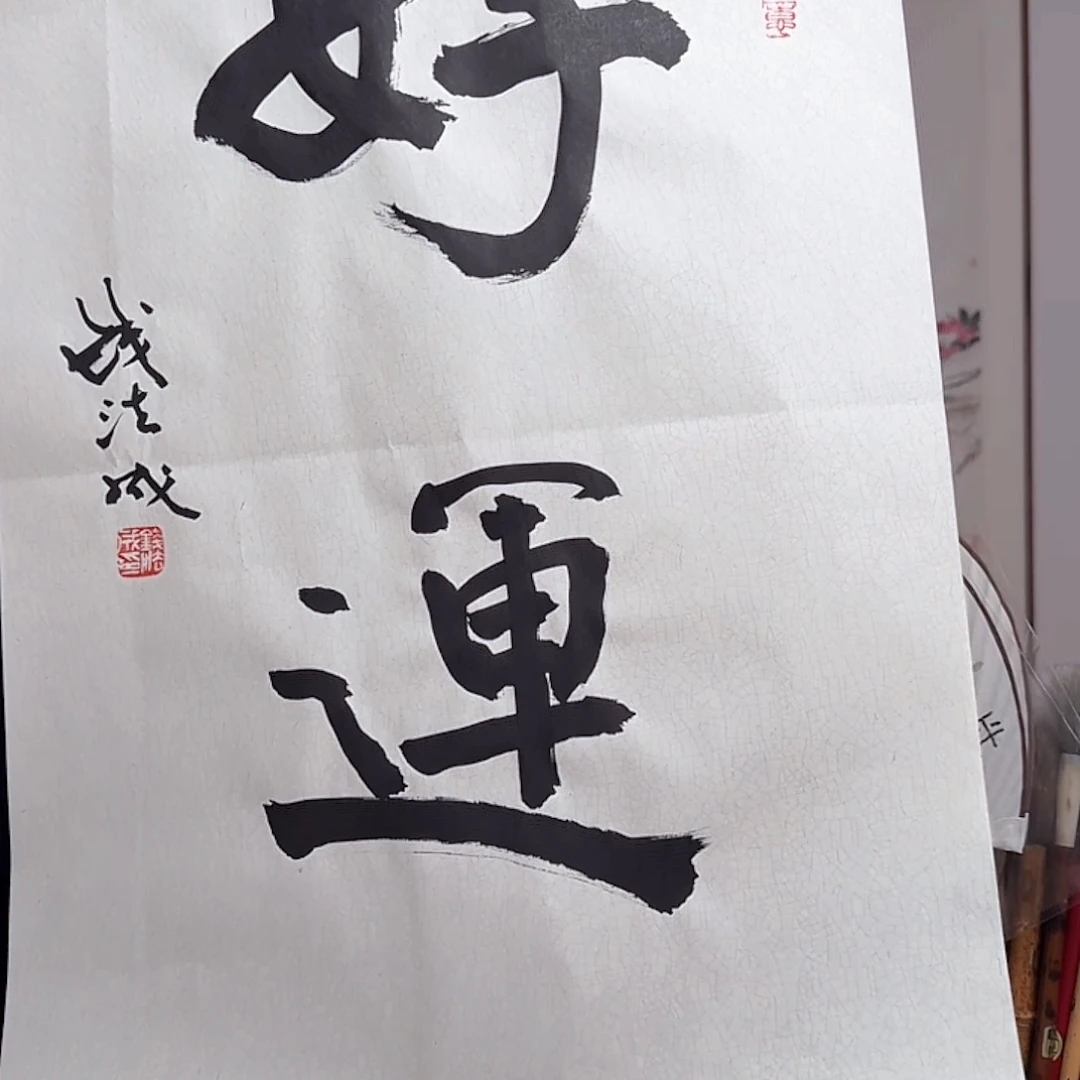 好運
钱法成